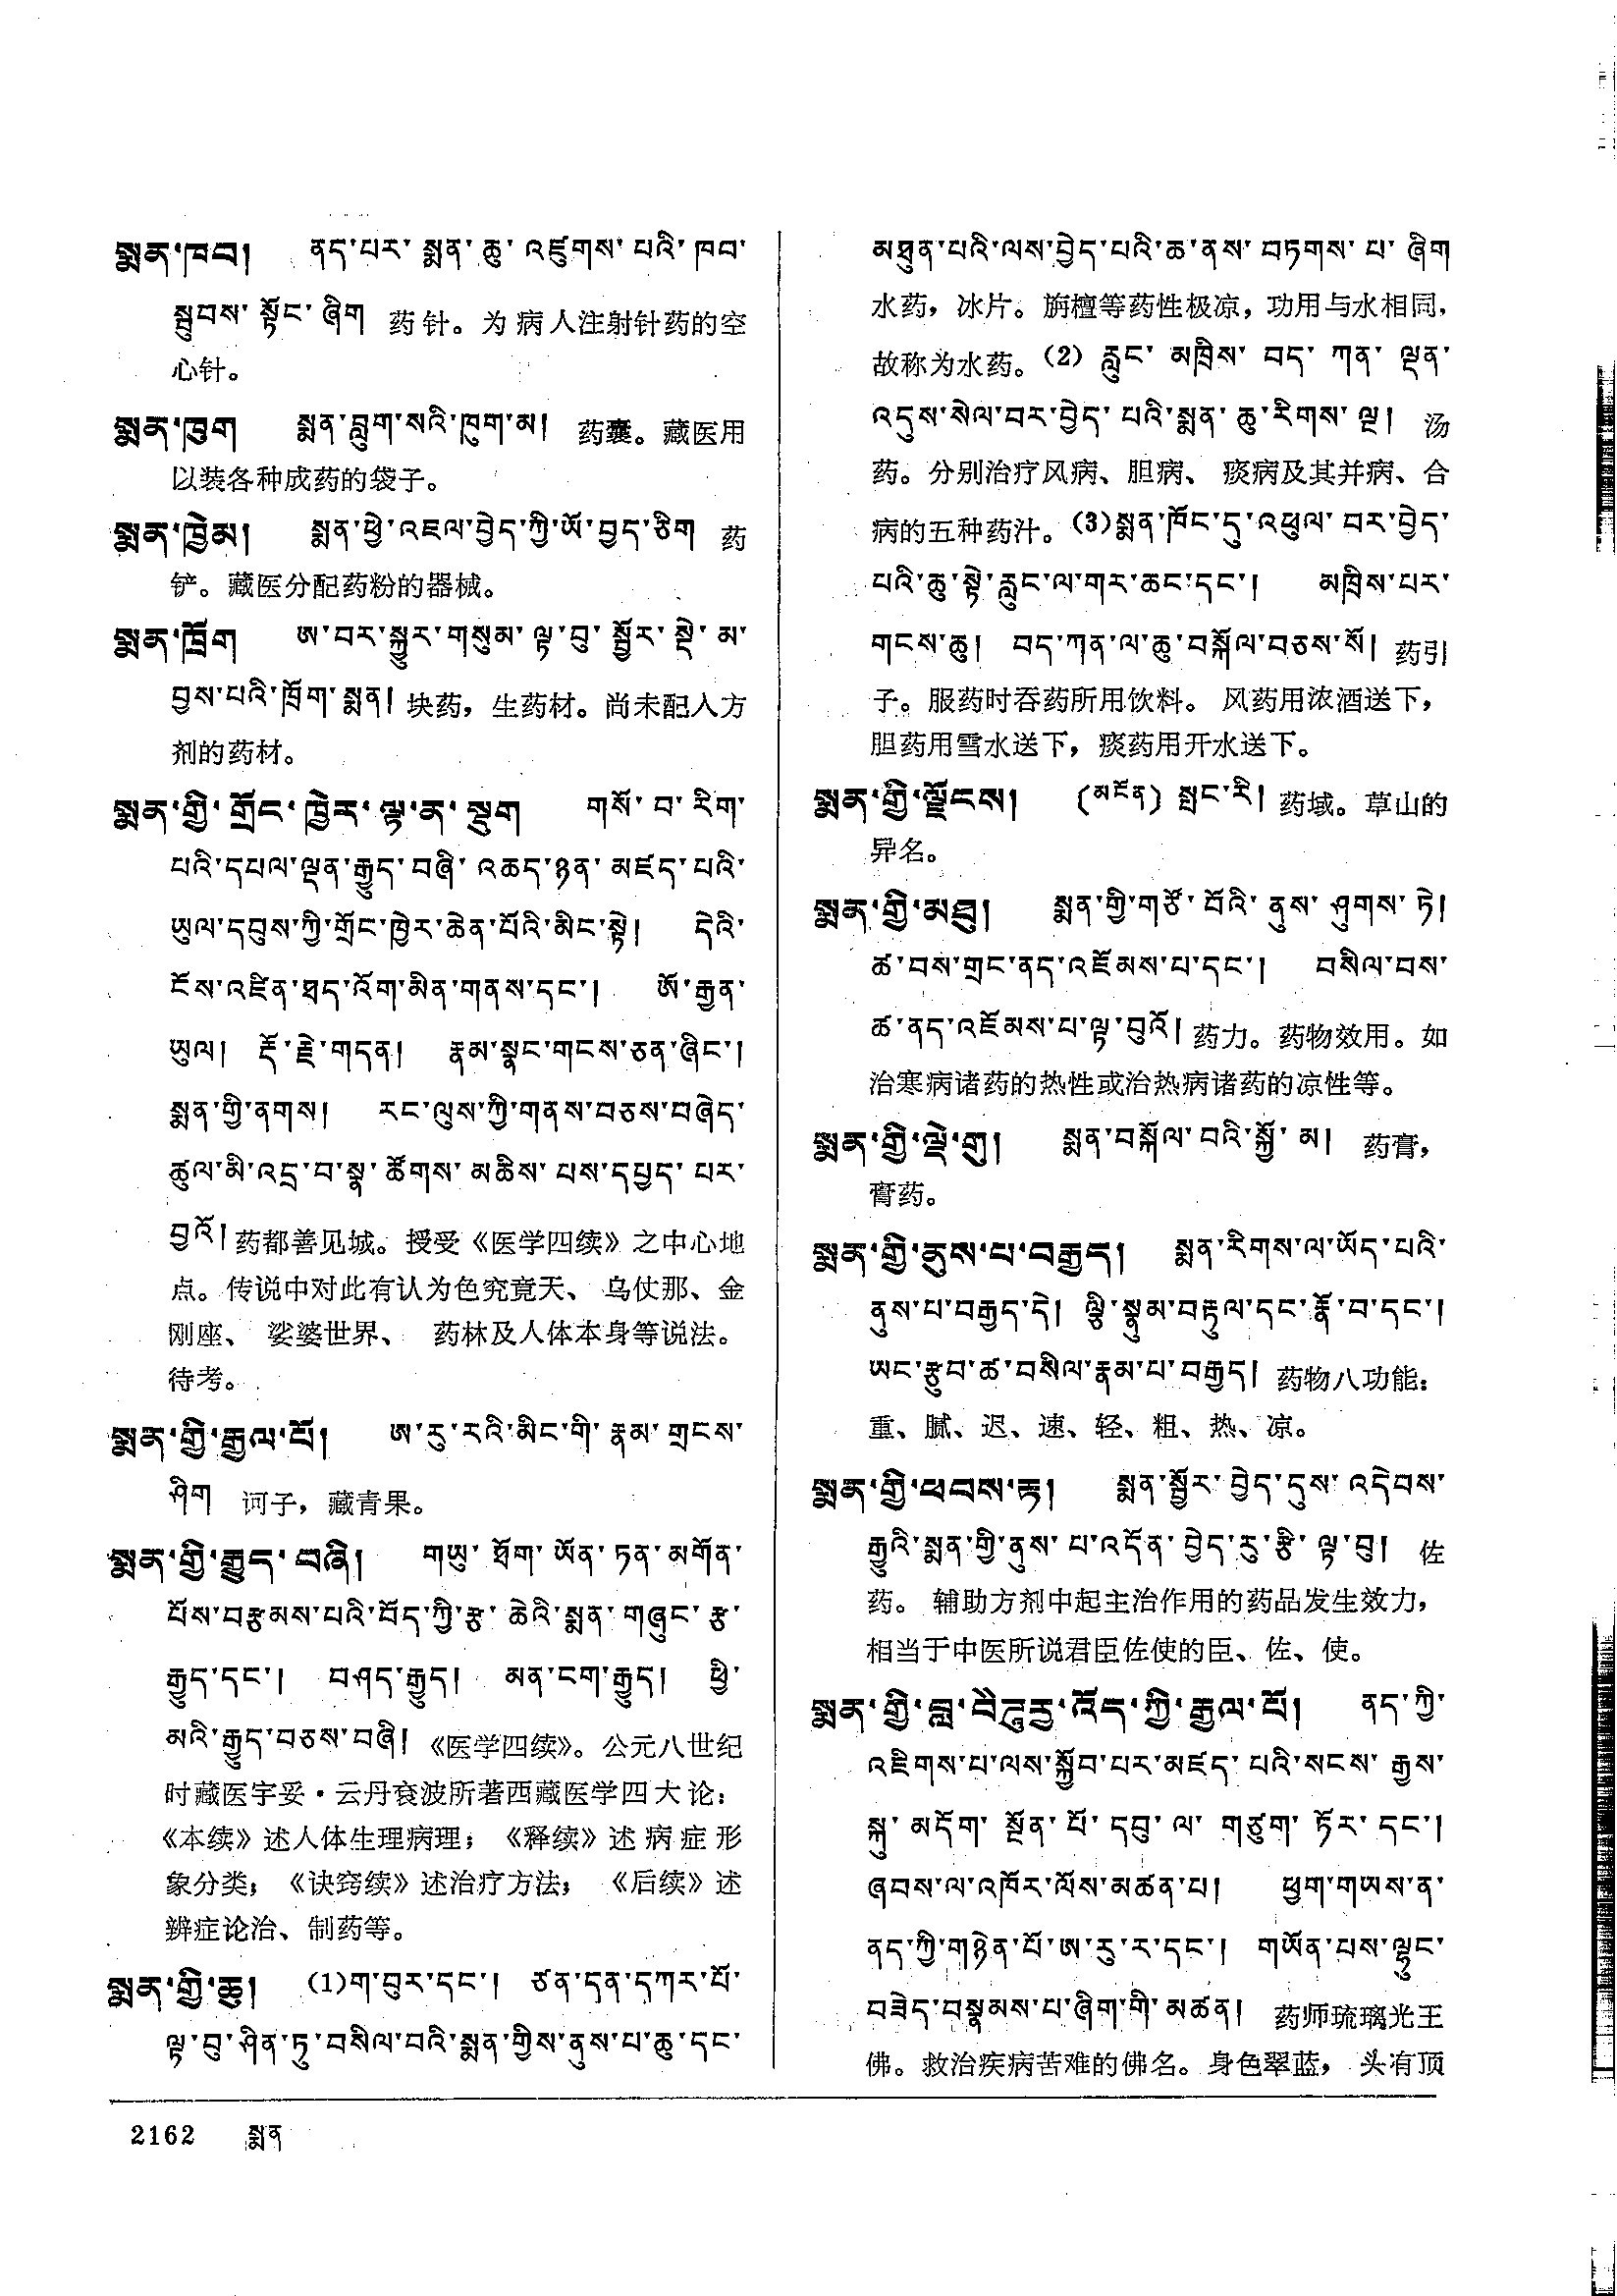 སྨན་ཁབ། ནད་པར་སྨན་ཆུ་འཛུགས་པའི་ཁབ་
སྦུབས་སྟོང་ཞིག 药针。为病人注射针药的空
心针。
སྨན་ཁུག སྨན་བླུག་སའི་ཁུག་མ། 药囊。藏医用
以装各种成药的袋子。
སྨན་ཁྱེམ། སྨན་ཕྱེ་འཇལ་བྱེད་ཀྱི་ཡོ་བྱད་ཅིག 药
铲。藏医分配药粉的器械。
སྨན་ཁྲོག ཨ་བར་སྐྱུར་གསུམ་ལྟ་བུ་སྦྱོར་སྡེ་མ་
བྱས་པའི་ཁྲོག་སྨན། 块药，生药材。尚未配入方
剂的药材。
སྨན་གྱི་གྲོང་ཁྱེར་ལྟ་ན་སྡུག གསོ་བ་རིག་
པའི་དཔལ་ལྡན་རྒྱུད་བཞི་འཆད་ཉན་མཛད་པའི་
ཡུལ་དབུས་ཀྱི་གྲོང་ཁྱེར་ཆེན་པོའི་མིང་སྟེ། དེའི་
ངོས་འཛིན་ཐད་འོག་མིན་གནས་དང་། ཨོ་རྒྱན་
ཡུལ། རྡོ་རྗེ་གདན། རྣམ་སྣང་གངས་ཅན་ཞིང་།
སྨན་གྱི་ནགས། རང་ལུས་ཀྱི་གནས་བཅས་བཞེད་
ཚུལ་མི་འདྲ་བ་སྣ་ཚོགས་མཆིས་པས་དཔྱད་པར་
བྱའོ། 药都善见城。授受《医学四续》之中心地
点。传说中对此有认为色究竟天、乌仗那、金
刚座、娑婆世界、药林及人体本身等说法。
待考。
སྨན་གྱི་རྒྱལ་པོ། ཨ་རུ་རའི་མིང་གི་རྣམ་གྲངས་
ཤིག 诃子，藏青果。
སྨན་གྱི་རྒྱུད་བཞི། གཡུ་ཐོག་ཡོན་ཏན་མགོན་
པོས་བརྩམས་པའི་བོད་ཀྱི་རྩ་ཆེའི་སྨན་གཞུང་རྩ་
རྒྱུད་དང་། བཤད་རྒྱུད། མན་ངག་རྒྱུད། ཕྱི་
མའི་རྒྱུད་བཅས་བཞི། 《医学四续》。公元八世纪
时藏医宇妥·云丹衮波所著西藏医学四大论：
《本续》述人体生理病理；《释续》述病症形
象分类；《诀窍续》述治疗方法；《后续》述
辨症论治、制药等。
སྨན་གྱི་ཆུ། (1)ག་བུར་དང་། ཙན་དན་དཀར་པོ་
ལྟ་བུ་ཤིན་ཏུ་བསིལ་བའི་སྨན་གྱིས་ནུས་པ་ཆུ་དང་
མཐུན་པའི་ལས་བྱེད་པའི་ཆ་ནས་བཏགས་པ་ཞིག
水药，冰片。旃檀等药性极凉，功用与水相同，
故称为水药。(2) རླུང་མཁྲིས་བད་ཀན་ལྡན་
འདུས་སེལ་བར་བྱེད་པའི་སྨན་ཆུ་རིགས་ལྔ། 汤
药。分别治疗风病、胆病、痰病及其并病、合
病的五种药汁。(3)སྨན་ཁོང་དུ་འཕུལ་བར་བྱེད་
པའི་ཆུ་སྟེ་རླུང་ལ་གར་ཆང་དང་། མཁྲིས་པར་
གངས་ཆུ། བད་ཀན་ལ་ཆུ་བསྐོལ་བཅས་སོ། 药引
子。服药时吞药所用饮料。风药用浓酒送下，
胆药用雪水送下，痰药用开水送下。
སྨན་གྱི་ལྗོངས། (མངོན) སྤང་རི། 药域。草山的
异名。
སྨན་གྱི་མཐུ། སྨན་གྱི་གཙོ་བོའི་ནུས་ཤུགས་ཏེ།
ཚ་བས་གྲང་ནད་འཇོམས་པ་དང་། བསིལ་བས་
ཚ་ནད་འཇོམས་པ་ལྟ་བུའོ། 药力。药物效用。如
治寒病诸药的热性或治热病诸药的凉性等。
སྨན་གྱི་ལྡེ་གུ། སྨན་བསྐོལ་བའི་སྐྱོ་མ། 药膏，
膏药。
སྨན་གྱི་ནུས་པ་བརྒྱད། སྨན་རིགས་ལ་ཡོད་པའི་
ནུས་པ་བརྒྱད་དེ། ལྕི་སྣུམ་བརྟུལ་དང་རྣོ་བ་དང་།
ཡང་རྩུབ་ཚ་བསིལ་རྣམ་པ་བརྒྱད། 药物八功能：
重、腻、迟、速、轻、粗、热、凉。
སྨན་གྱི་ཕབས་རྟ། སྨན་སྦྱོར་བྱེད་དུས་འདེབས་
རྒྱུའི་སྨན་གྱི་ནུས་པ་འདོན་བྱེད་རུ་རྩི་ལྟ་བུ། 佐
药。辅助方剂中起主治作用的药品发生效力，
相当于中医所说君臣佐使的臣、佐、使。
སྨན་གྱི་བླ་བེཌཱུརྱ་འོད་ཀྱི་རྒྱལ་པོ། ནད་ཀྱི་
འཇིགས་པ་ལས་སྐྱོབ་པར་མཛད་པའི་སངས་རྒྱས་
སྐུ་མདོག་སྔོན་པོ་དབུ་ལ་གཙུག་ཏོར་དང་།
ཞབས་ལ་འཁོར་ལོས་མཚན་པ། ཕྱག་གཡས་ན་
ནད་ཀྱི་གཉེན་པོ་ཨ་རུ་ར་དང་། གཡོན་པས་ལྷུང་
བཟེད་བསྣམས་པ་ཞིག་གི་མཚན། 药师琉璃光王
佛。救治疾病苦难的佛名。身色翠蓝，头有顶
2162 སྨན